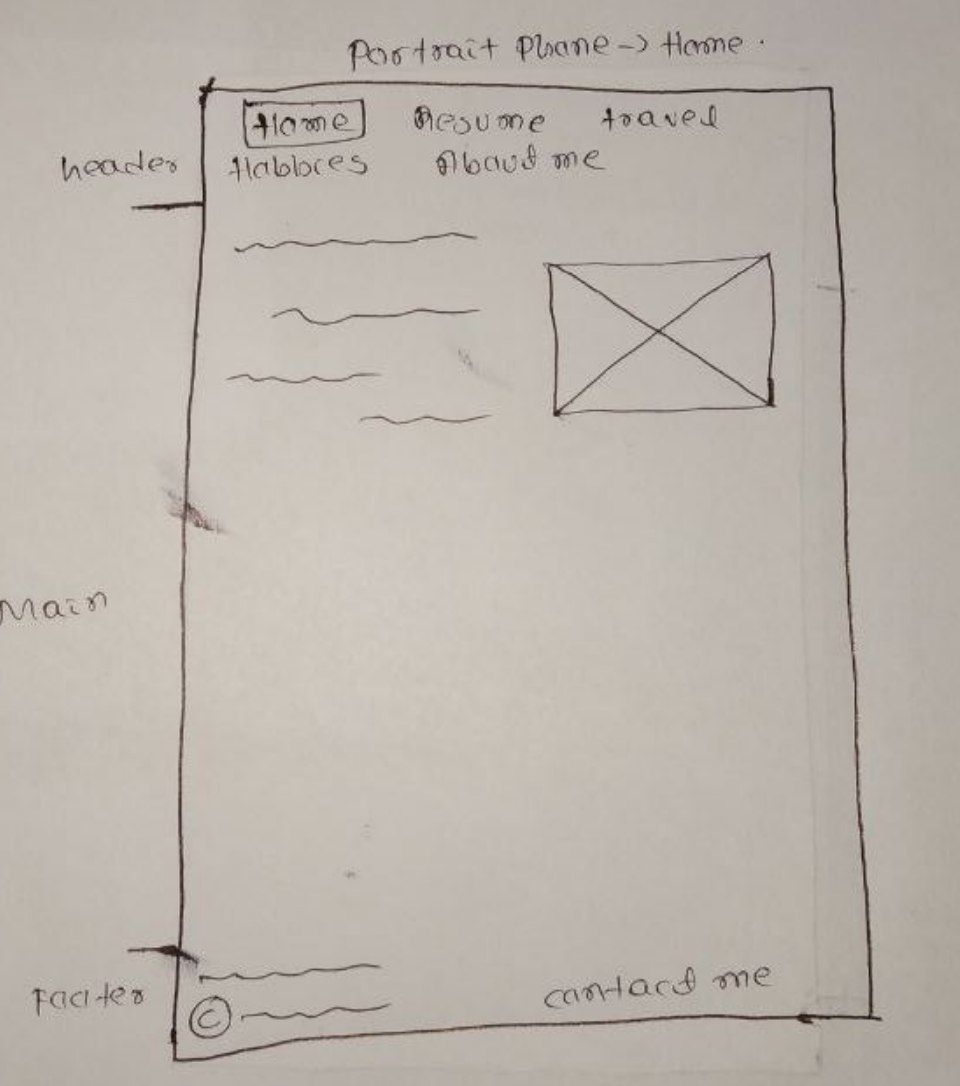 Portrait Phone -> Home.
Home Resume travel
header
Habbies About me
Main
Footer
© contact me